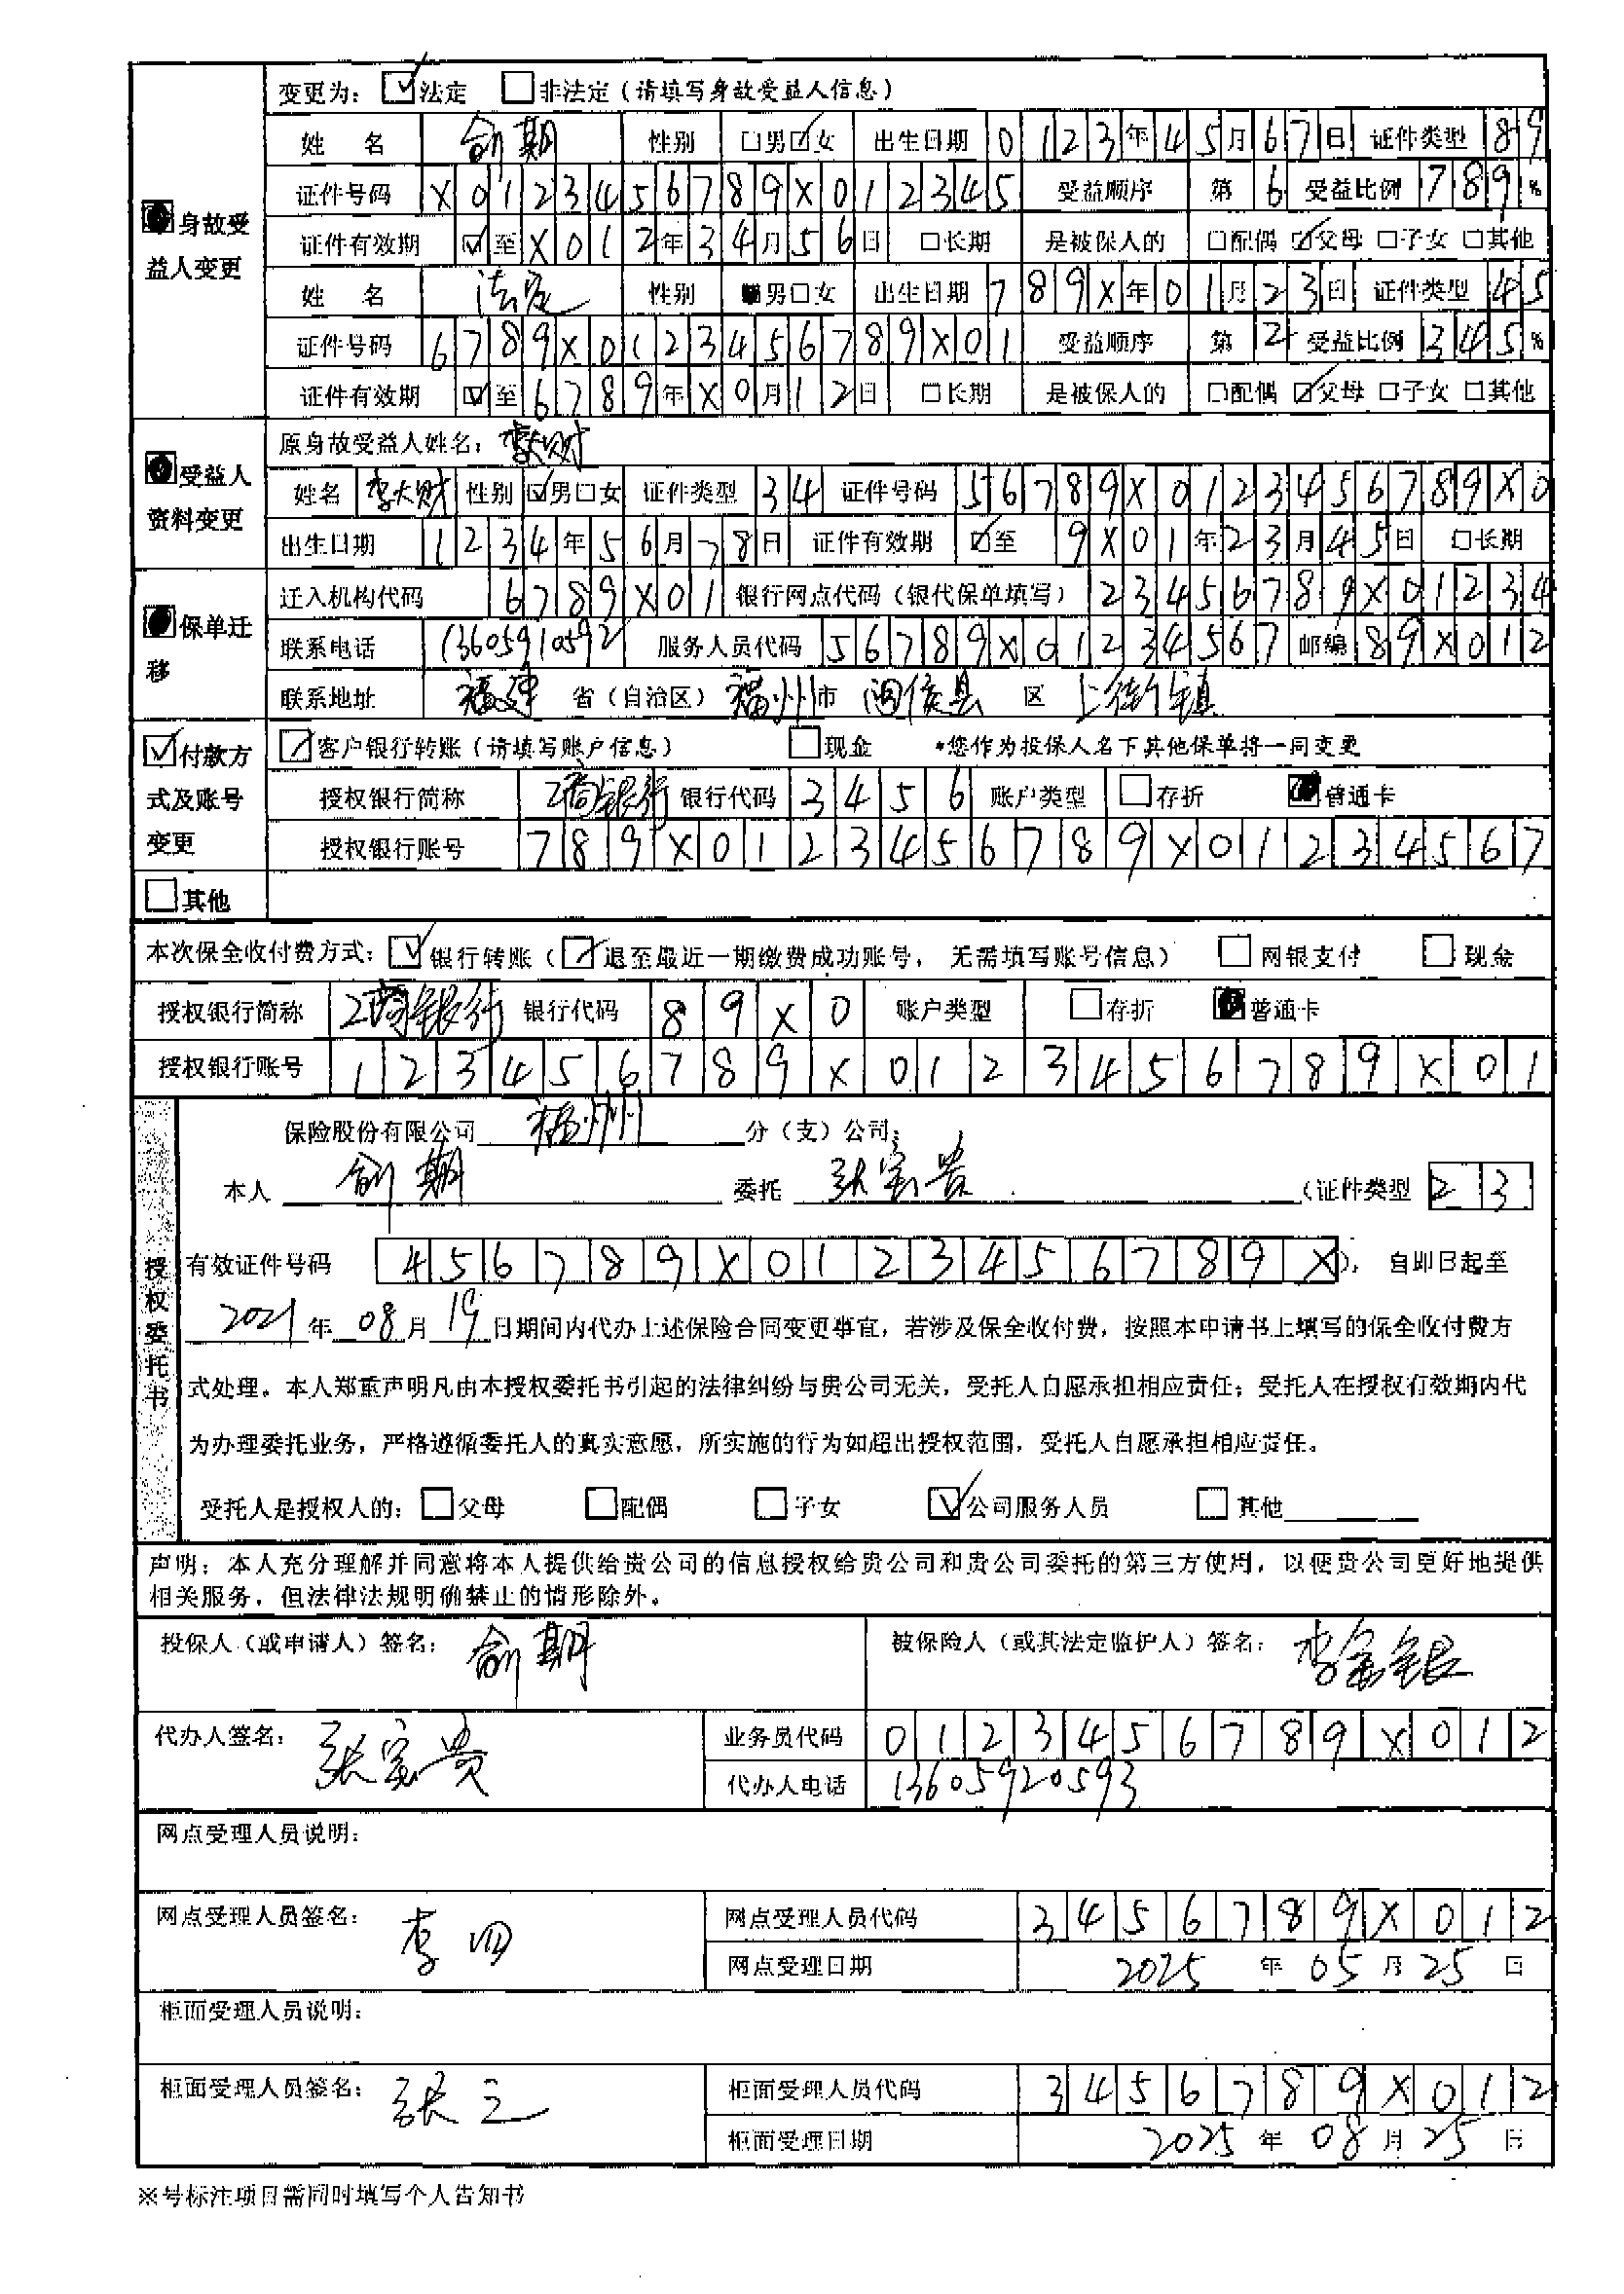 变更为：☑法定 □非法定（请填写身故受益人信息）
姓 名 俞期 性别 □男☑女 出生日期 0123年45月67日 证件类型 89
证件号码 X0123456789X012345 受益顺序 第6 受益比例 789%
■身故受益人变更
证件有效期 ☑至X012年34月56日 □长期 是被保人的 □配偶 ☑父母 □子女 □其他
姓 名 法定 性别 ■男□女 出生日期 789X年01月23日 证件类型 45
证件号码 6789X0123456789X01 受益顺序 第2 受益比例 345%
证件有效期 ☑至6789年X0月12日 □长期 是被保人的 □配偶 ☑父母 □子女 □其他
■受益人资料变更
原身故受益人姓名：李大财
姓名 李大财 性别 ☑男□女 证件类型 34 证件号码 56789X0123456789X0
出生日期 1234年56月78日 证件有效期 ☑至 9X01年23月45日 □长期
■保单迁移
迁入机构代码 6789X01 银行网点代码（银代保单填写） 23456789X01234
联系电话 13605910592 服务人员代码 56789X01234567 邮编 89X012
联系地址 福建 省（自治区） 福州市 闽侯县 区 上街镇
☑付款方式及账号变更
☑客户银行转账（请填写账户信息） □现金 *您作为投保人名下其他保单将一同变更
授权银行简称 工商银行 银行代码 3456 账户类型 □存折 ■普通卡
授权银行账号 789X0123456789X01234567
□其他
本次保全收付费方式：☑银行转账（☑退至最近一期缴费成功账号，无需填写账号信息） □网银支付 □现金
授权银行简称 工商银行 银行代码 89X0 账户类型 □存折 ■普通卡
授权银行账号 123456789X0123456789X01
授权委托书
保险股份有限公司 福州 分（支）公司：
本人 俞期 委托 张富贵 （证件类型 23
有效证件号码 456789X0123456789X），自即日起至
2021年08月19日期间内代办上述保险合同变更事宜，若涉及保全收付费，按照本申请书上填写的保全收付费方
式处理。本人郑重声明凡由本授权委托书引起的法律纠纷与贵公司无关，受托人自愿承担相应责任；受托人在授权有效期内代
为办理委托业务，严格遵循委托人的真实意愿，所实施的行为如超出授权范围，受托人自愿承担相应责任。
受托人是授权人的：□父母 □配偶 □子女 ☑公司服务人员 □其他
声明：本人充分理解并同意将本人提供给贵公司的信息授权给贵公司和贵公司委托的第三方使用，以便贵公司更好地提供
相关服务，但法律法规明确禁止的情形除外。
投保人（或申请人）签名：俞期 被保险人（或其法定监护人）签名：李金银
代办人签名：张富贵 业务员代码 0123456789X012
代办人电话 13605920593
网点受理人员说明：
网点受理人员签名：李四 网点受理人员代码 3456789X012
网点受理日期 2025年05月25日
柜面受理人员说明：
柜面受理人员签名：张三 柜面受理人员代码 3456789X012
柜面受理日期 2025年08月25日
※号标注项目需同时填写个人告知书